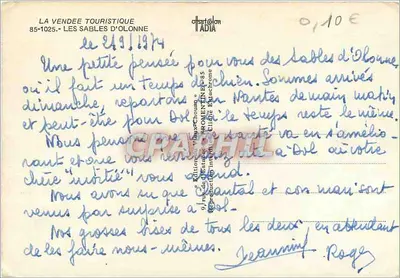 LA VENDEE TOURISTIQUE
85-1025.- LES SABLES D'OLONNE
artaud
IADIA
0,10€
le 2/9/1974
Une petite pensée pour vous des Sables d'Olonne,
où il fait un temps de chien. Sommes arrivés
dimanche, repartons Nantes demain matin
et peut-être pour Dol si le temps reste le même.
Nous pensons que santé va en s'amélio-
rant et que vous à Dol où votre
chère "moitié" vous attend.
Nous avons su que Chantal et son mari sont
venus par surprise à Dol.
Nos grosses bises de tous les deux, en attendant
de les faire nous-mêmes.
Jeannine Roger
CPAPHIL